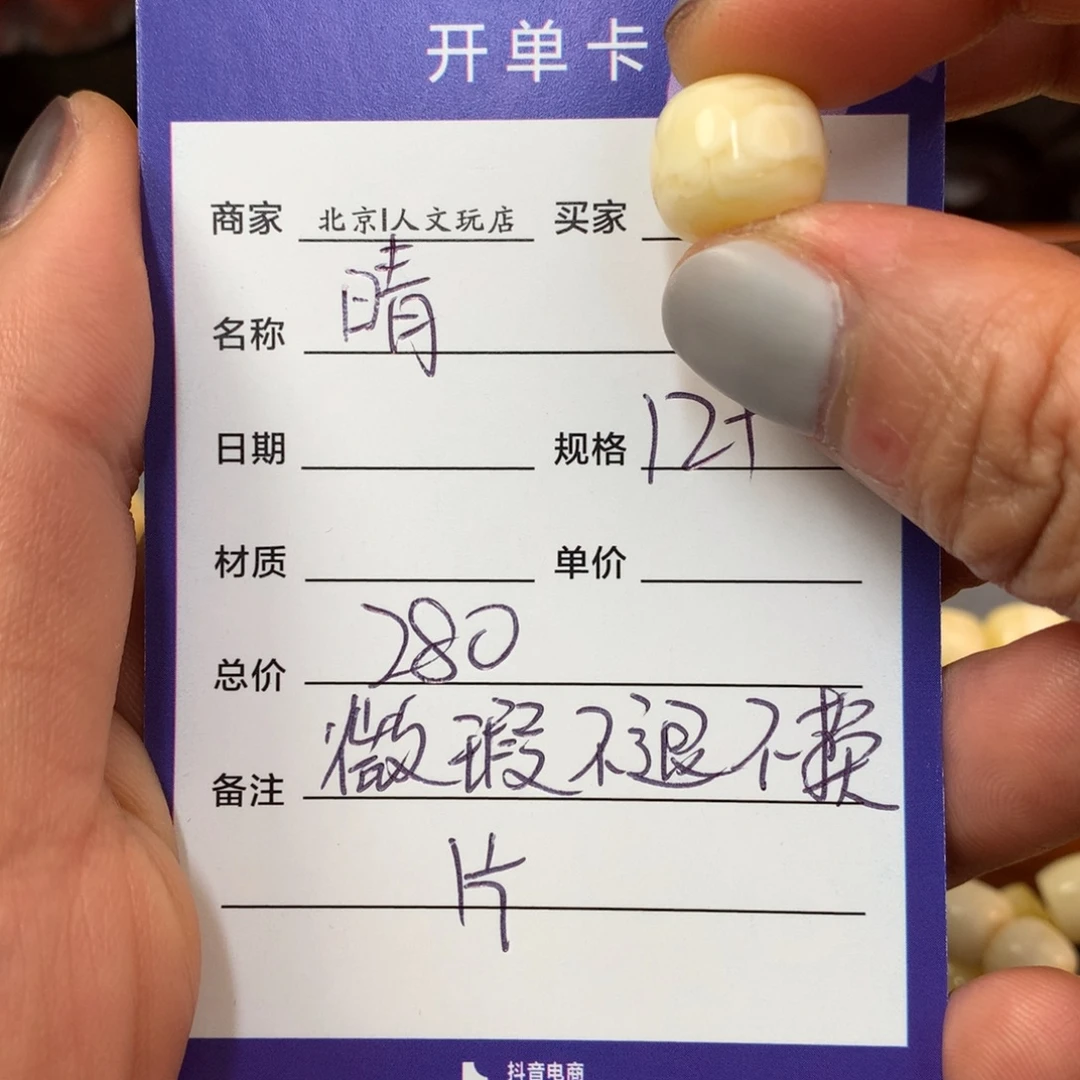 开单卡
商家 北京I人文玩店 买家
名称 晴
日期 规格 12+
材质 单价
总价 280
备注 微瑕不退不赞
片
抖音电商